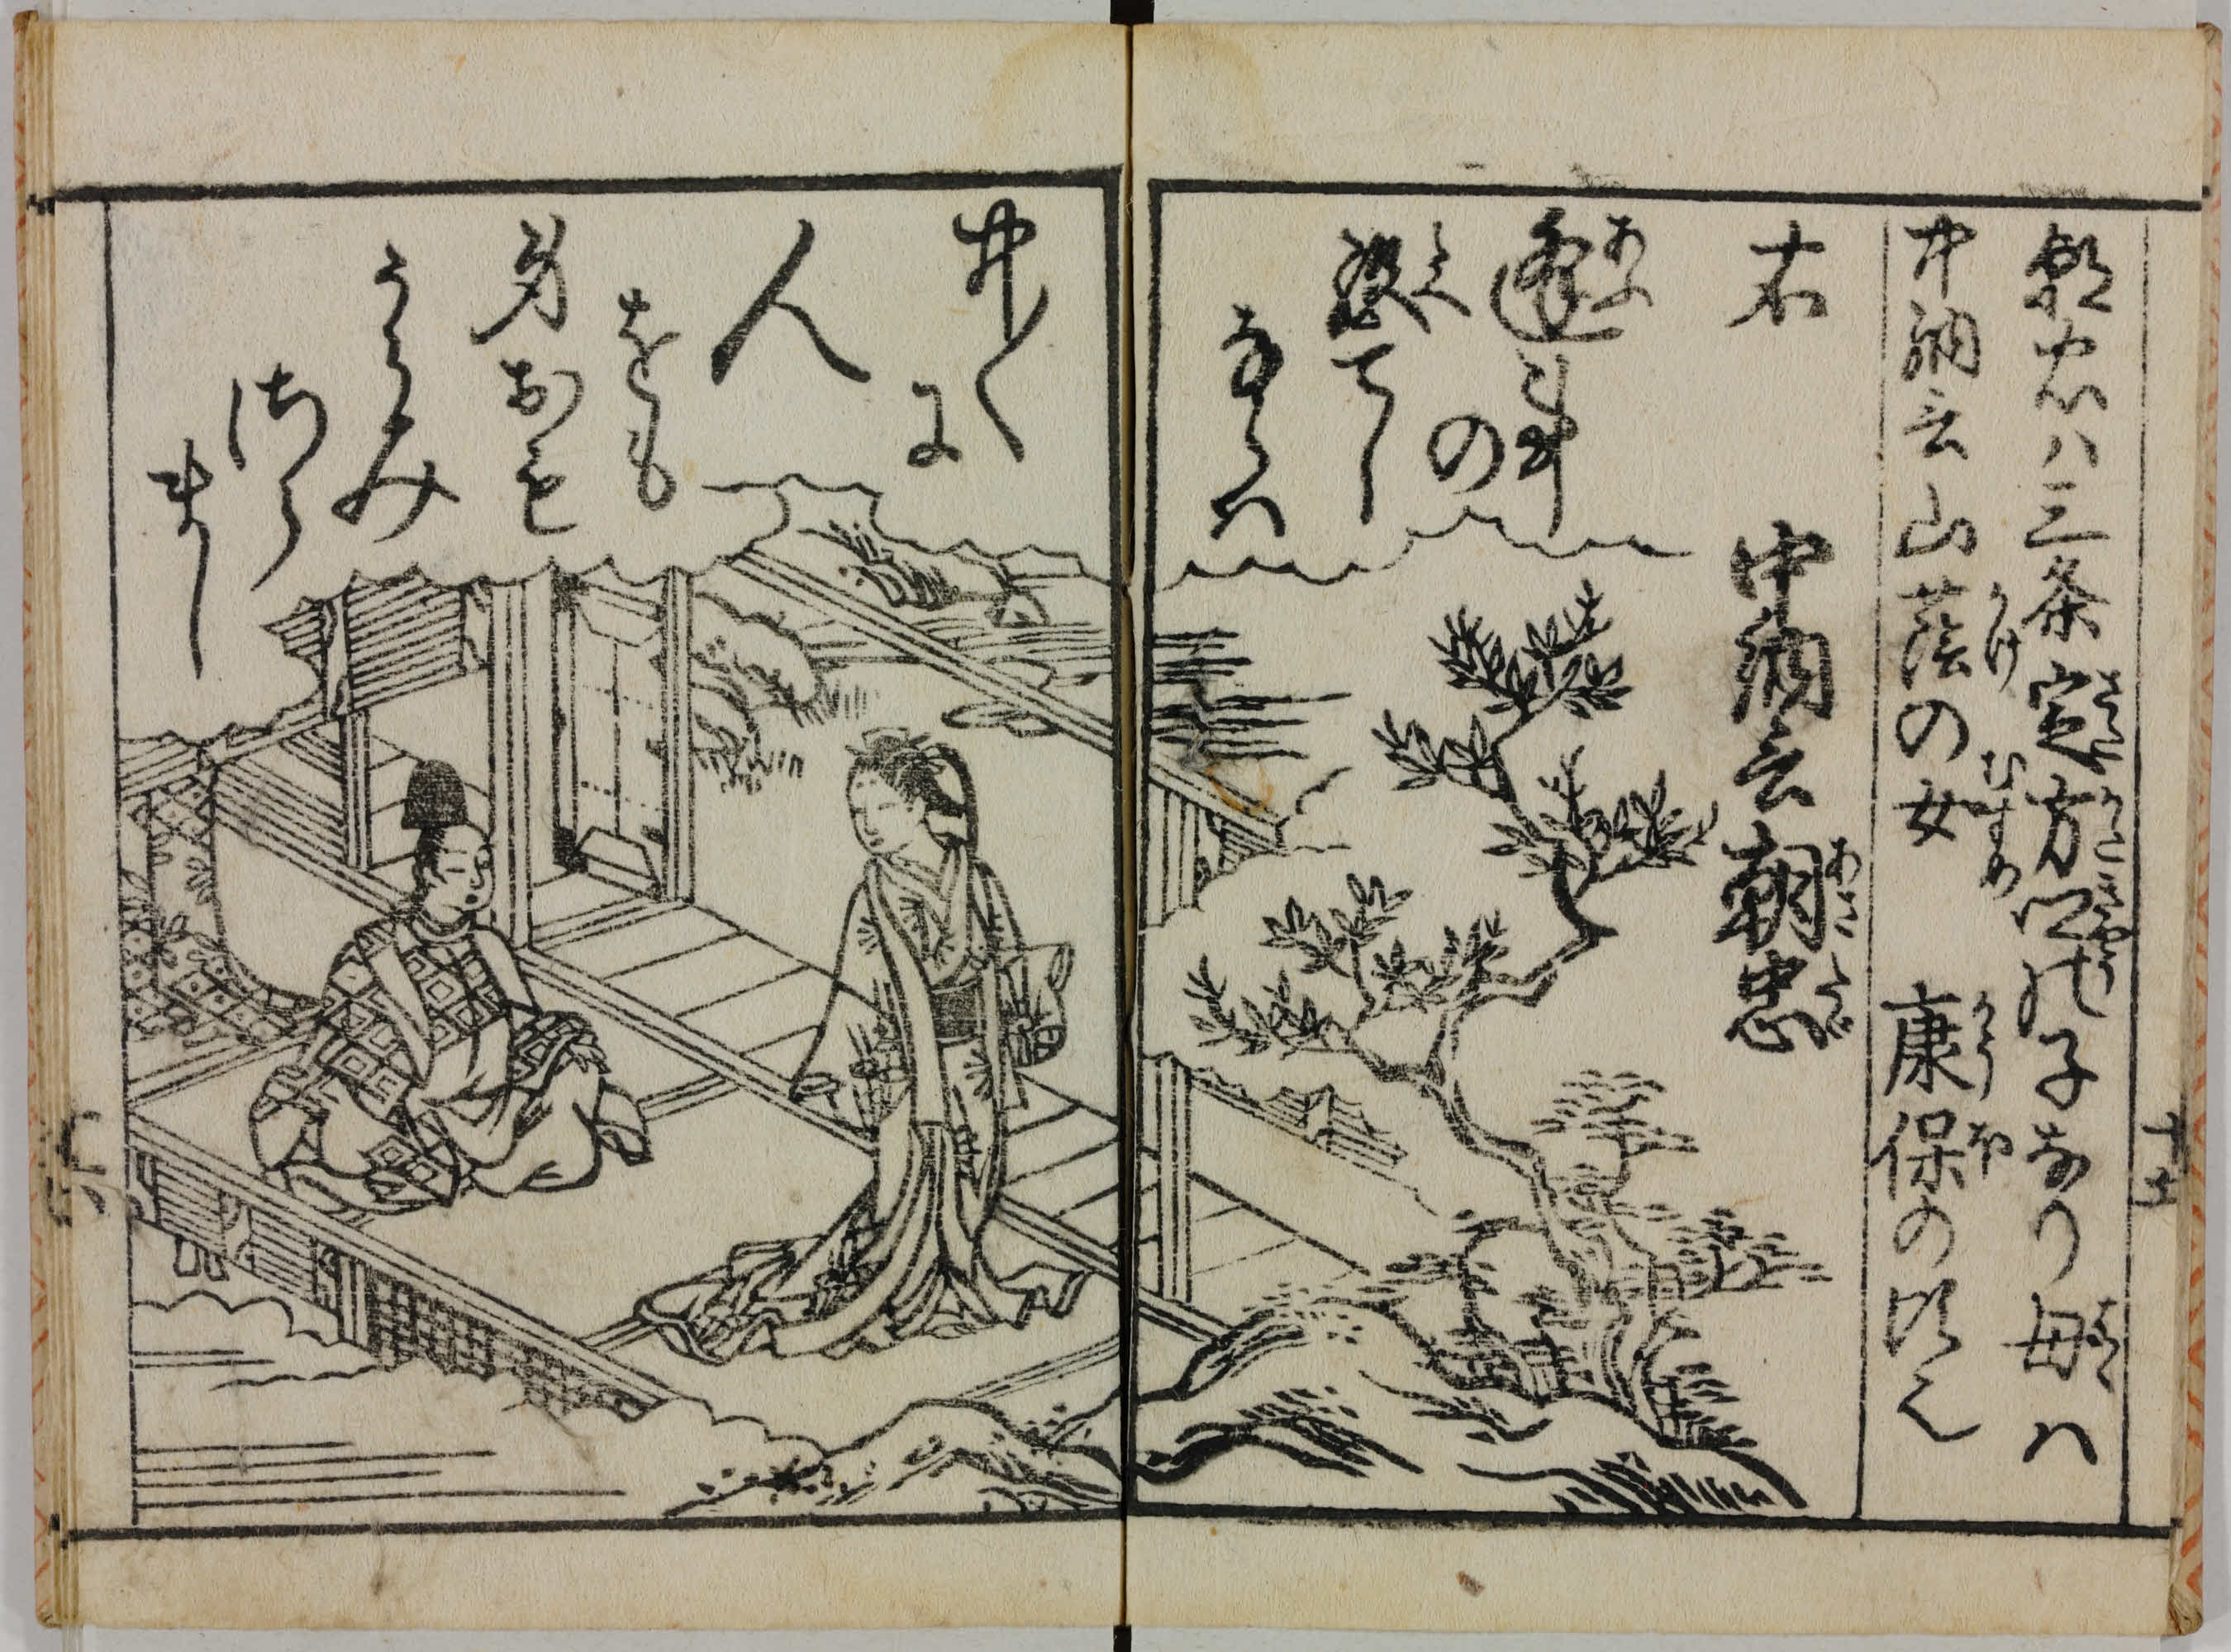 朝忠ハ三条定方公の子なり母ハ
中納言山蔭の女 康保の比之
右
中納言朝忠
逢事
の
絶てし
なくハ
中〱に
人
をも
身をも
うらみ
さら
まし